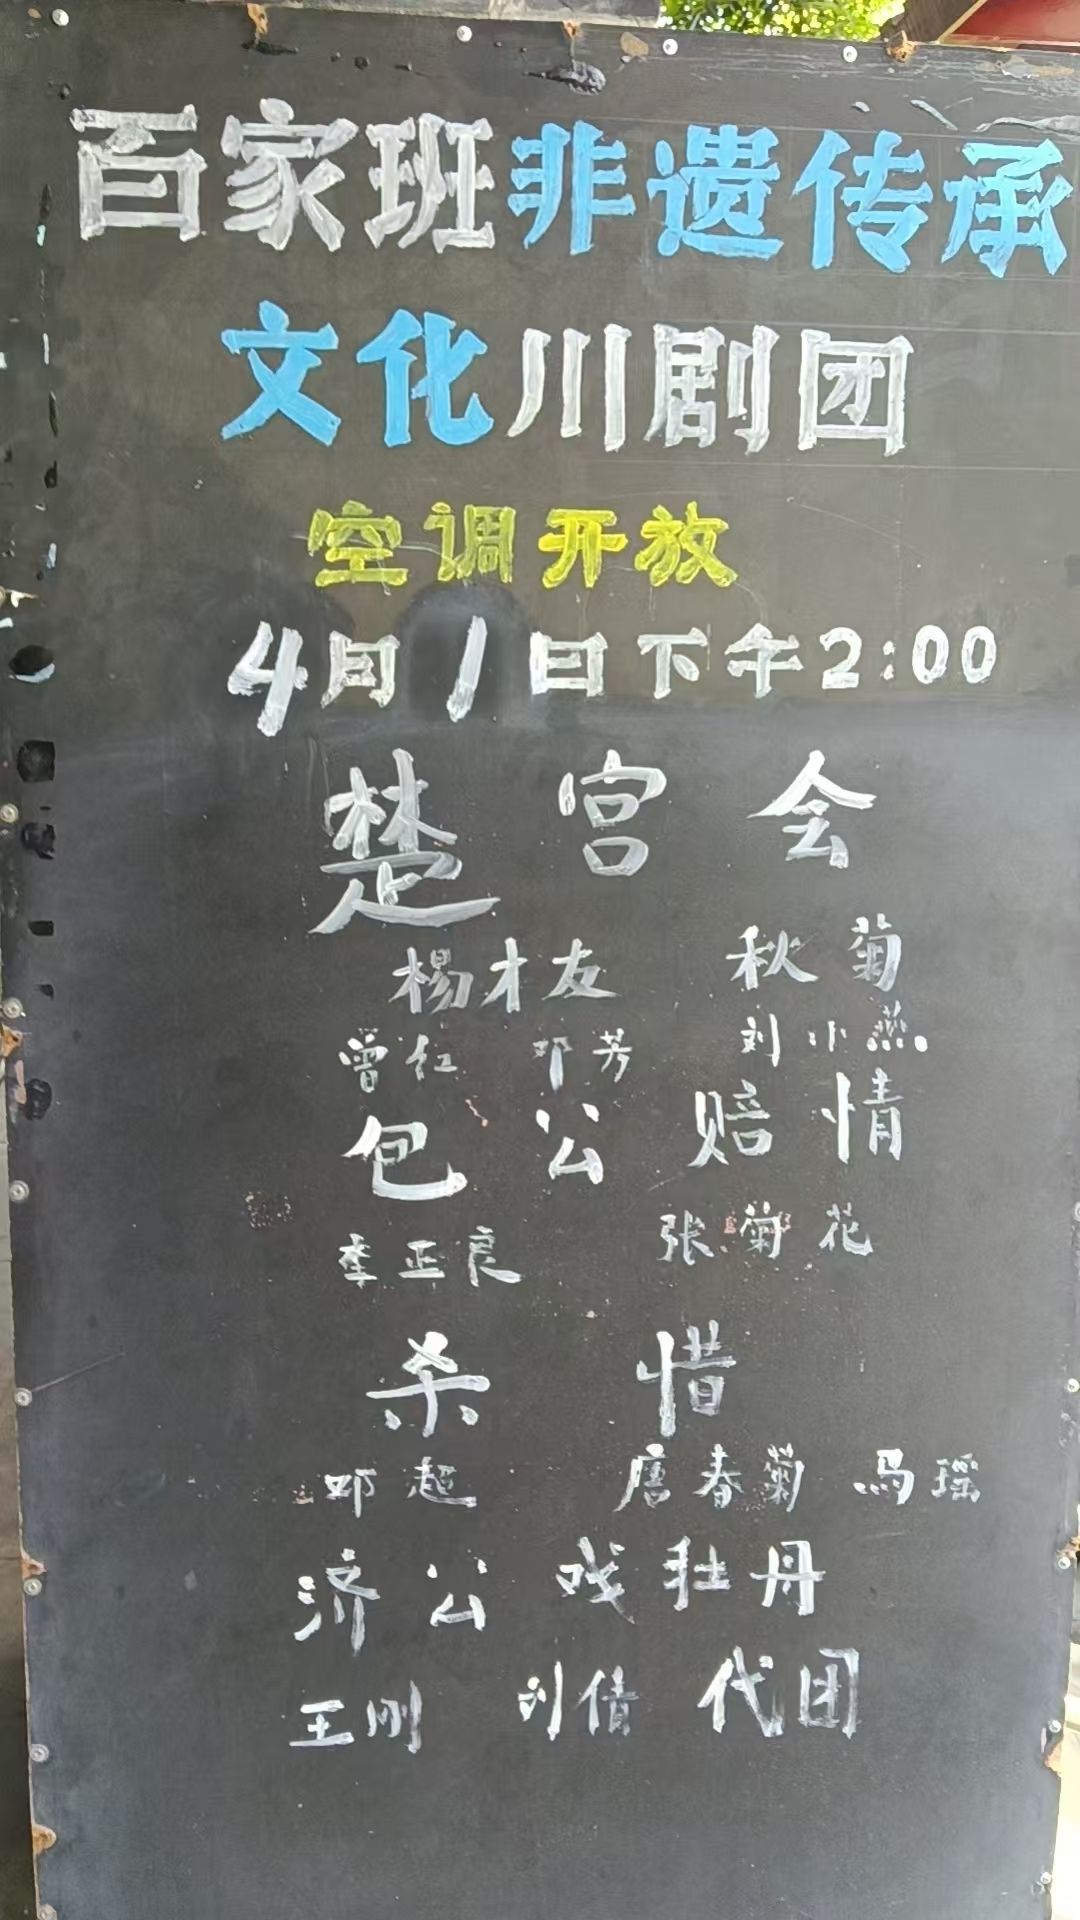 百家班非遗传承
文化川剧团
空调开放
4月1日下午2:00
楚宫会
杨才友 秋菊
曾仁 邓芳 刘小燕
包公赔情
李正良 张菊花
杀惜
邓超 唐春菊 马瑶
济公戏牡丹
王刚 刘倩 代团